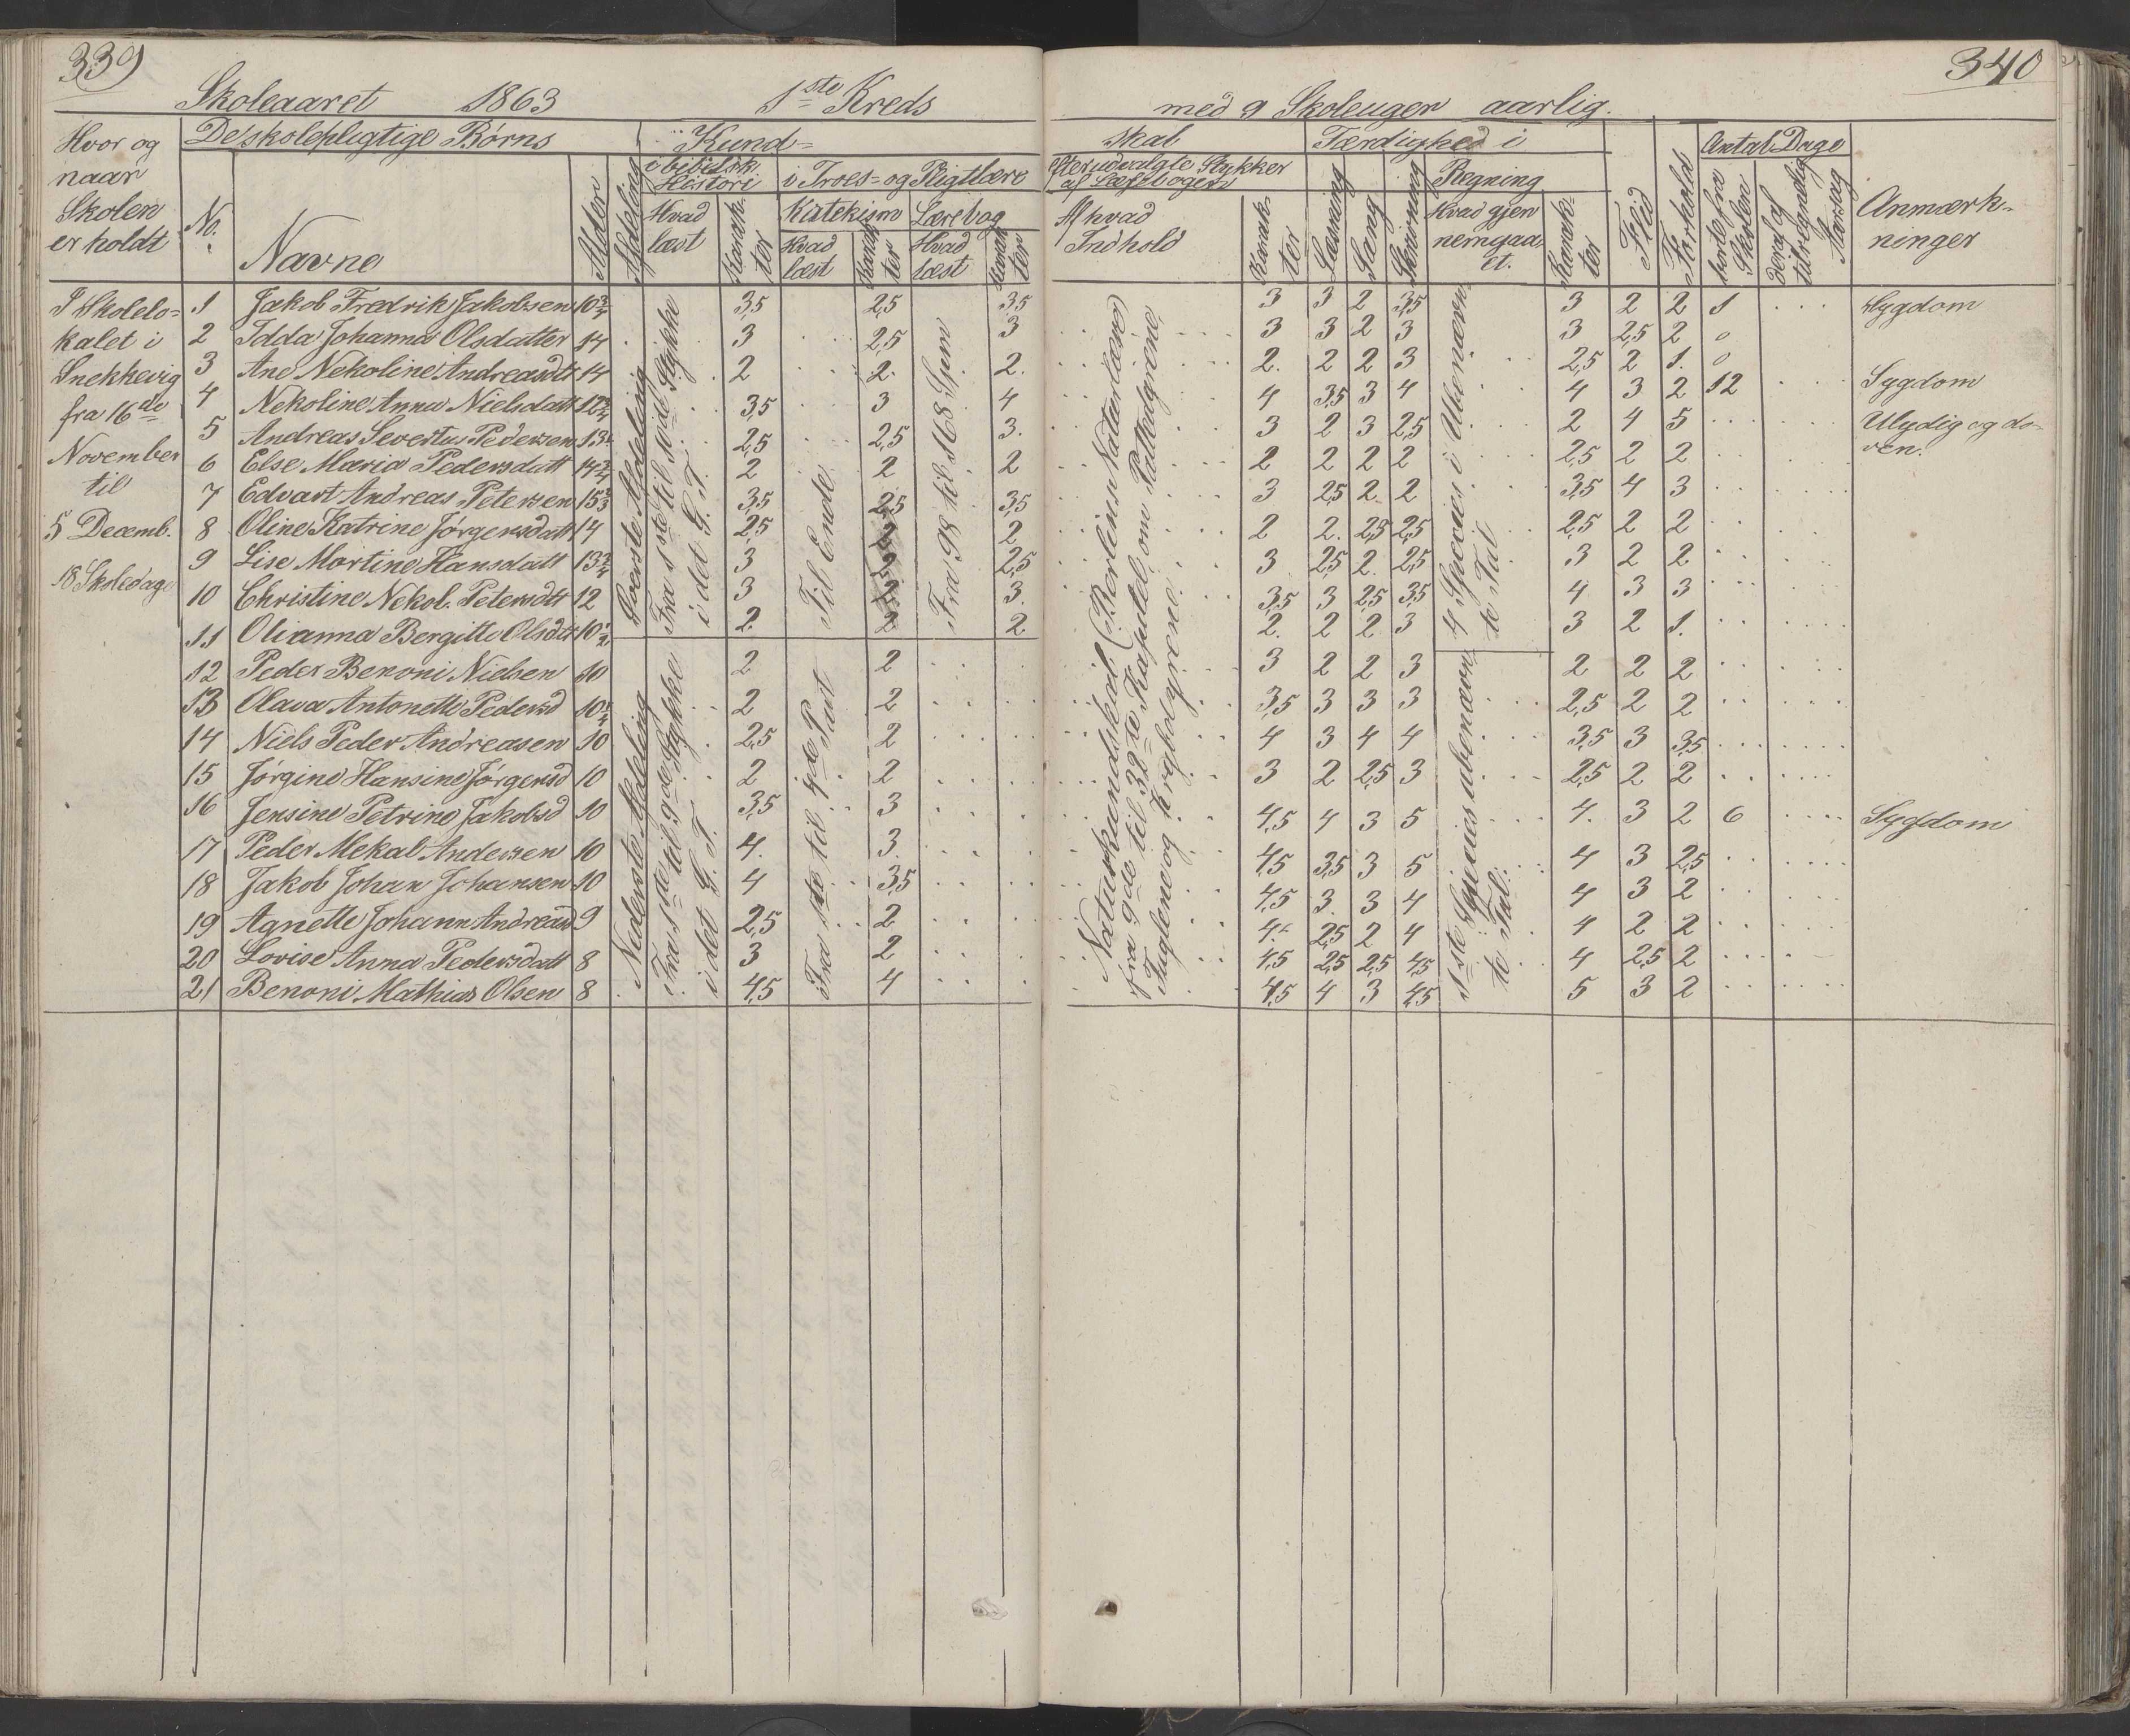 339
Skoleaaret 1863 1ste Kreds
Hvor og naar Skolen er holdt
De skolepligtige Børns
No.
Navne
Alder
Afdeling
Kund-
i bibelsk Histori
Hvad læst
Karakter
i Troes- og Pligtlære
Katekism
Hvad læst
Karakter
Lærebog
Hvad læst
Karakter
I Skolelo-
kalet i
Snekkevig
fra 16de
November
til
5 Decemb.
18 Skoledage
Øverste Afdeling
Fra 1ste til Stykke
i det G. T.
Til Ende
Fra 98 til 168 Spm
1 Jakob Fredrik Jakobsen 10¾ 3,5 2,5 3,5
2 Johanna Olsdatter 14 3 2,5 3
3 Ane Nekoline Andreasdtt 14 2 2. 2.
4 Nekoline Anna Nielsdatt 12¾ 3,5 3 4
5 Andreas Severtus Pedersen 2,5 2,5 3.
6 Else Maria Pedersdatt 2 2 2
7 Edvart Andreas Petersen 3,5 2,5 3,5
8 Oline Katrine Jørgensdatt 14 2,5 2 2
9 Lise Martine Hansdatt 13¾ 3 2,5
10 Christine Nekol. Petersdtt 12 3 3.
11 Olianna Bergitte Olsdtt 10½ 2 2 2
Nederste Afdeling
Fra 1ste til 9de Stykke
i det G. T.
Fra 1ste til 4de Part
12 Peder Benoni Nielsen 10 2 2
13 Olava Antonette Pedersd 10¼ 2 2
14 Niels Peder Andreasen 10 2,5 2
15 Jørgine Hansine Jørgensd 10 2 2
16 Jensine Petrine Jakobsd 10 3,5 3
17 Peder Mekal Andersen 10 4. 3.
18 Jakob Johan Johansen 10 4 3,5
19 Agnette Johann Andreasd 9 2,5 2
20 Lovise Anna Pedersdatt 8 3 2
21 Benoni Mathias Olsen 8 4,5 4
340
med 9 Skoleuger aarlig.
skab
efter udvalgte Stykker af Læsebogen
Af hvad Indhold
Karakter
Færdighed i
Læsning
Sang
Skrivning
Regning
Hvad gjennemgaaet.
Karakter
Flid
Forhold
Antal Dage
borte fra Skolen
deraf af tilregnelig Aarsag
Anmærkninger
Naturkundskab
fra 9de til 32te Kapitel om Pattedyrene,
Fuglene og Krybdyrene.
4 Species i Ubenævn
te Tal
1ste Species ubenævn
te Tal.
3 3 2 3,5 3 2 2 1 Sygdom
3 3 2 3 3 2,5 2 0
2. 2 2 3 2,5 2 1. 0
4 3,5 3 4 4 3 2 12 Sygdom
3 2 3 2,5 2 4 5 Ulydig og do-
ven.
2 2 2 2 2,5 2 2
3 2,5 2 2 3,5 4 3
2 2. 2,5 2,5 2,5 2 2
3 2,5 2. 2,5 3 2 2
3,5 3 2,5 3,5 4 3 3
2. 2 2 3 3 2 1.
3 2 2 3 2 2 2
3,5 3 3 3 2,5 2 2
4 3 4 4 3,5 3 3,5
3 2 2,5 3 2,5 2 2
4,5 4 3 5 4. 3 2 6 Sygdom
4,5 3,5 3 5 4 3 2,5
4,5 3. 3 4 4 3 2
4. 2,5 2 4 4 2 2
4,5 2,5 2,5 4,5 4 2,5 2
4,5 4 3 4,5 5 3 2